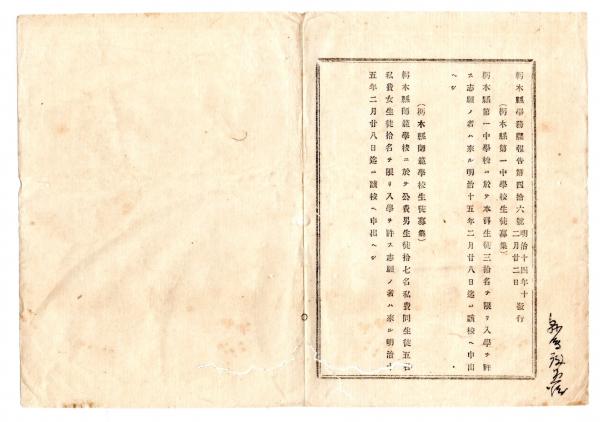 栃木縣學務課報告第四拾六號 明治十四年十二月廿二日 發行
（栃木縣第一中學校生徒募集）
栃木縣第一中學校ニ於テ本科生徒三拾名ヲ限リ入學ヲ許
ス志願ノ者ハ來ル明治十五年二月廿八日迄ニ該校ヘ申出
ヘシ
（栃木縣師範學校生徒募集）
栃木縣師範學校ニ於テ公費男生徒拾七名私費同生徒五名
私費女生徒拾名ヲ限リ入學ヲ許ス志願ノ者ハ來ル明治十
五年二月廿八日迄ニ該校ヘ申出ヘシ